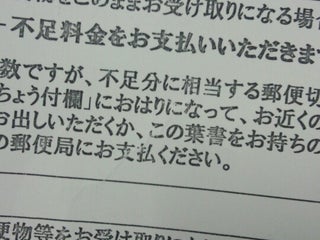 物をこのままお受け取りになる場合
不足料金をお支払いいただきます
数ですが、不足分に相当する郵便切
ちょう付欄」におはりになって、お近くの
お出しいただくか、この葉書をお持ちの
の郵便局にお支払ください。
便物等をお受け取りに